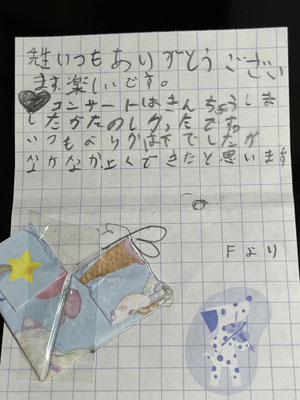 先生いつもありがとうござい
ます。楽しいです。
コンサートはきんちょうしま
したがたのしかったですね
いつもよりが下でしたが
なかなか上くできたと思います
Fより